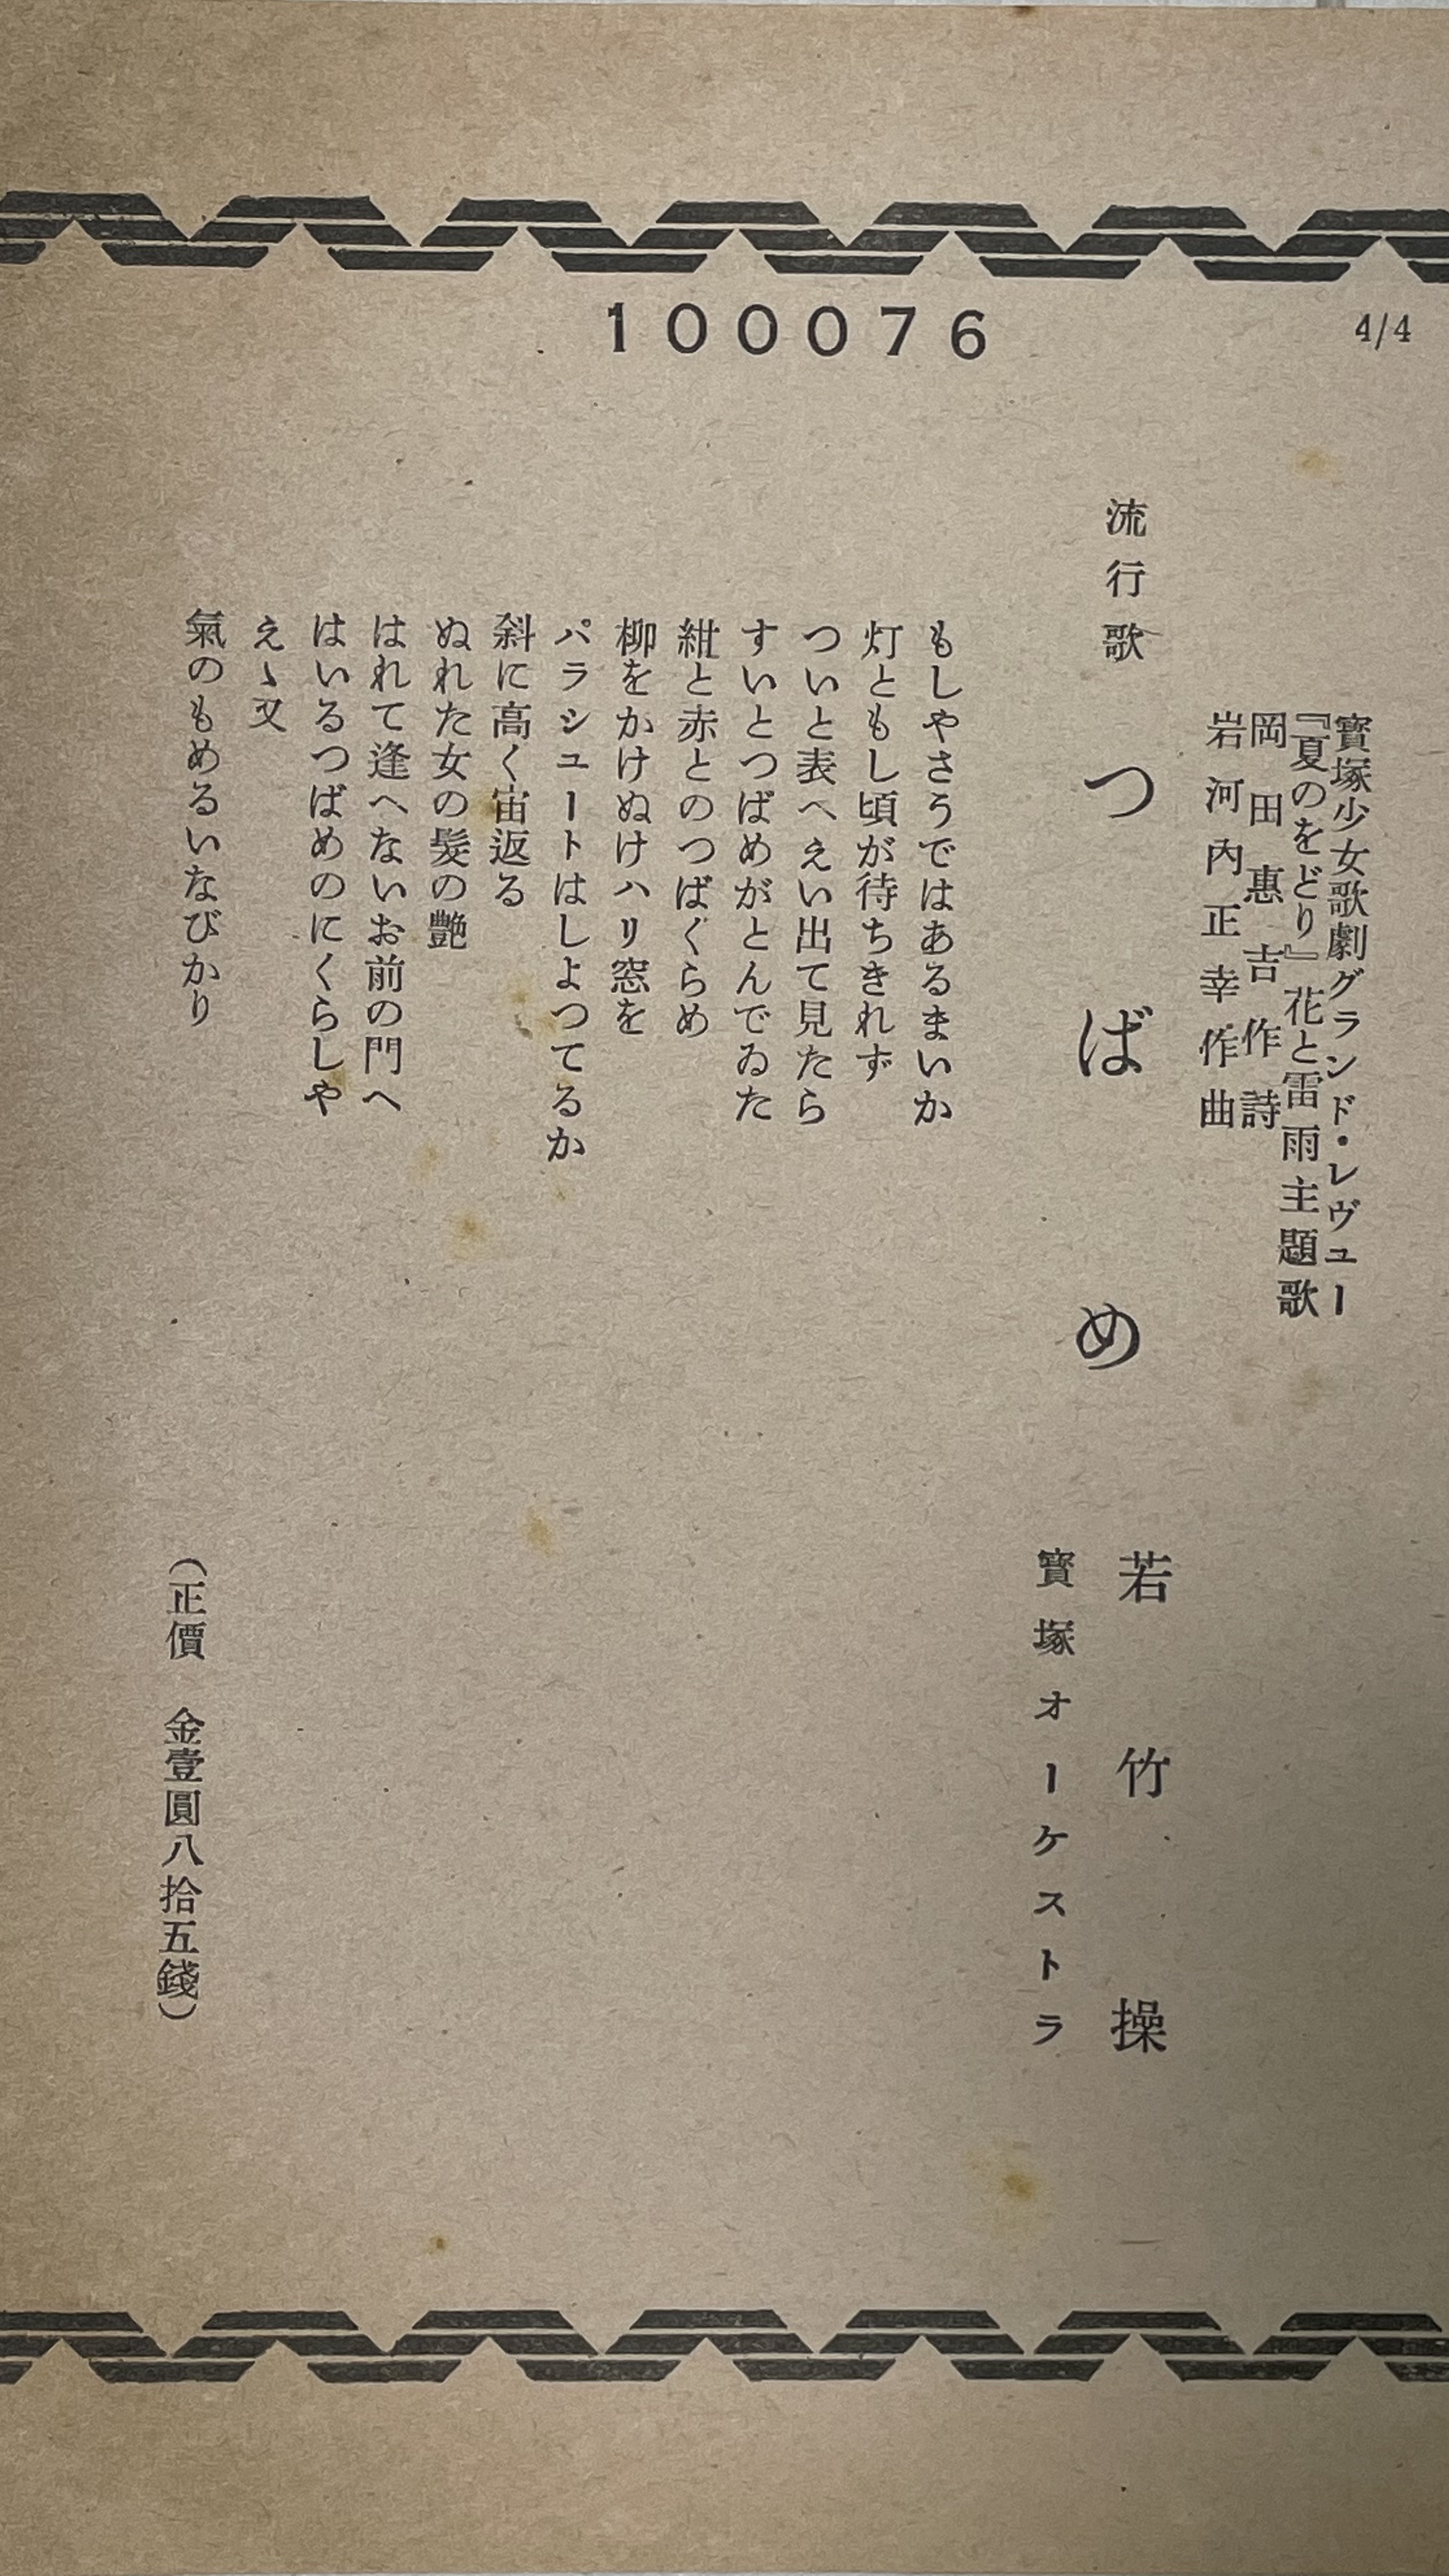 100076
4/4
寶塚少女歌劇グランド・レヴユー
『夏のをどり』花と雷雨主題歌
岡田惠吉作詩
岩河內正幸作曲
流行歌
つばめ
若竹操
寶塚オーケストラ
もしやさうではあるまいか
灯ともし頃が待ちきれず
ついと表へえい出て見たら
すいとつばめがとんでゐた
紺と赤とのつばくらめ
柳をかけぬけハリ窓を
パラシユートはしよつてるか
斜に高く宙返る
ぬれた女の髮の艶
はれて逢へないお前の門へ
はいるつばめのにくらしや
えゝ又
氣のもめるいなびかり
(正價 金壹圓八拾五錢)